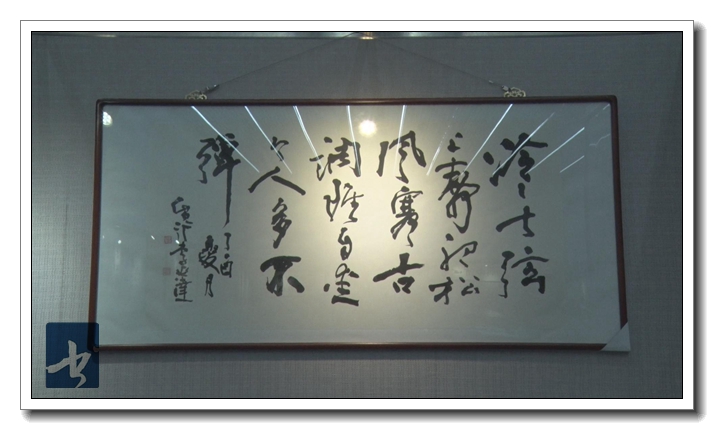 泠〻七弦
上靜聽松
風寒古
調雖自愛
今人多不
彈
丁酉
夏月